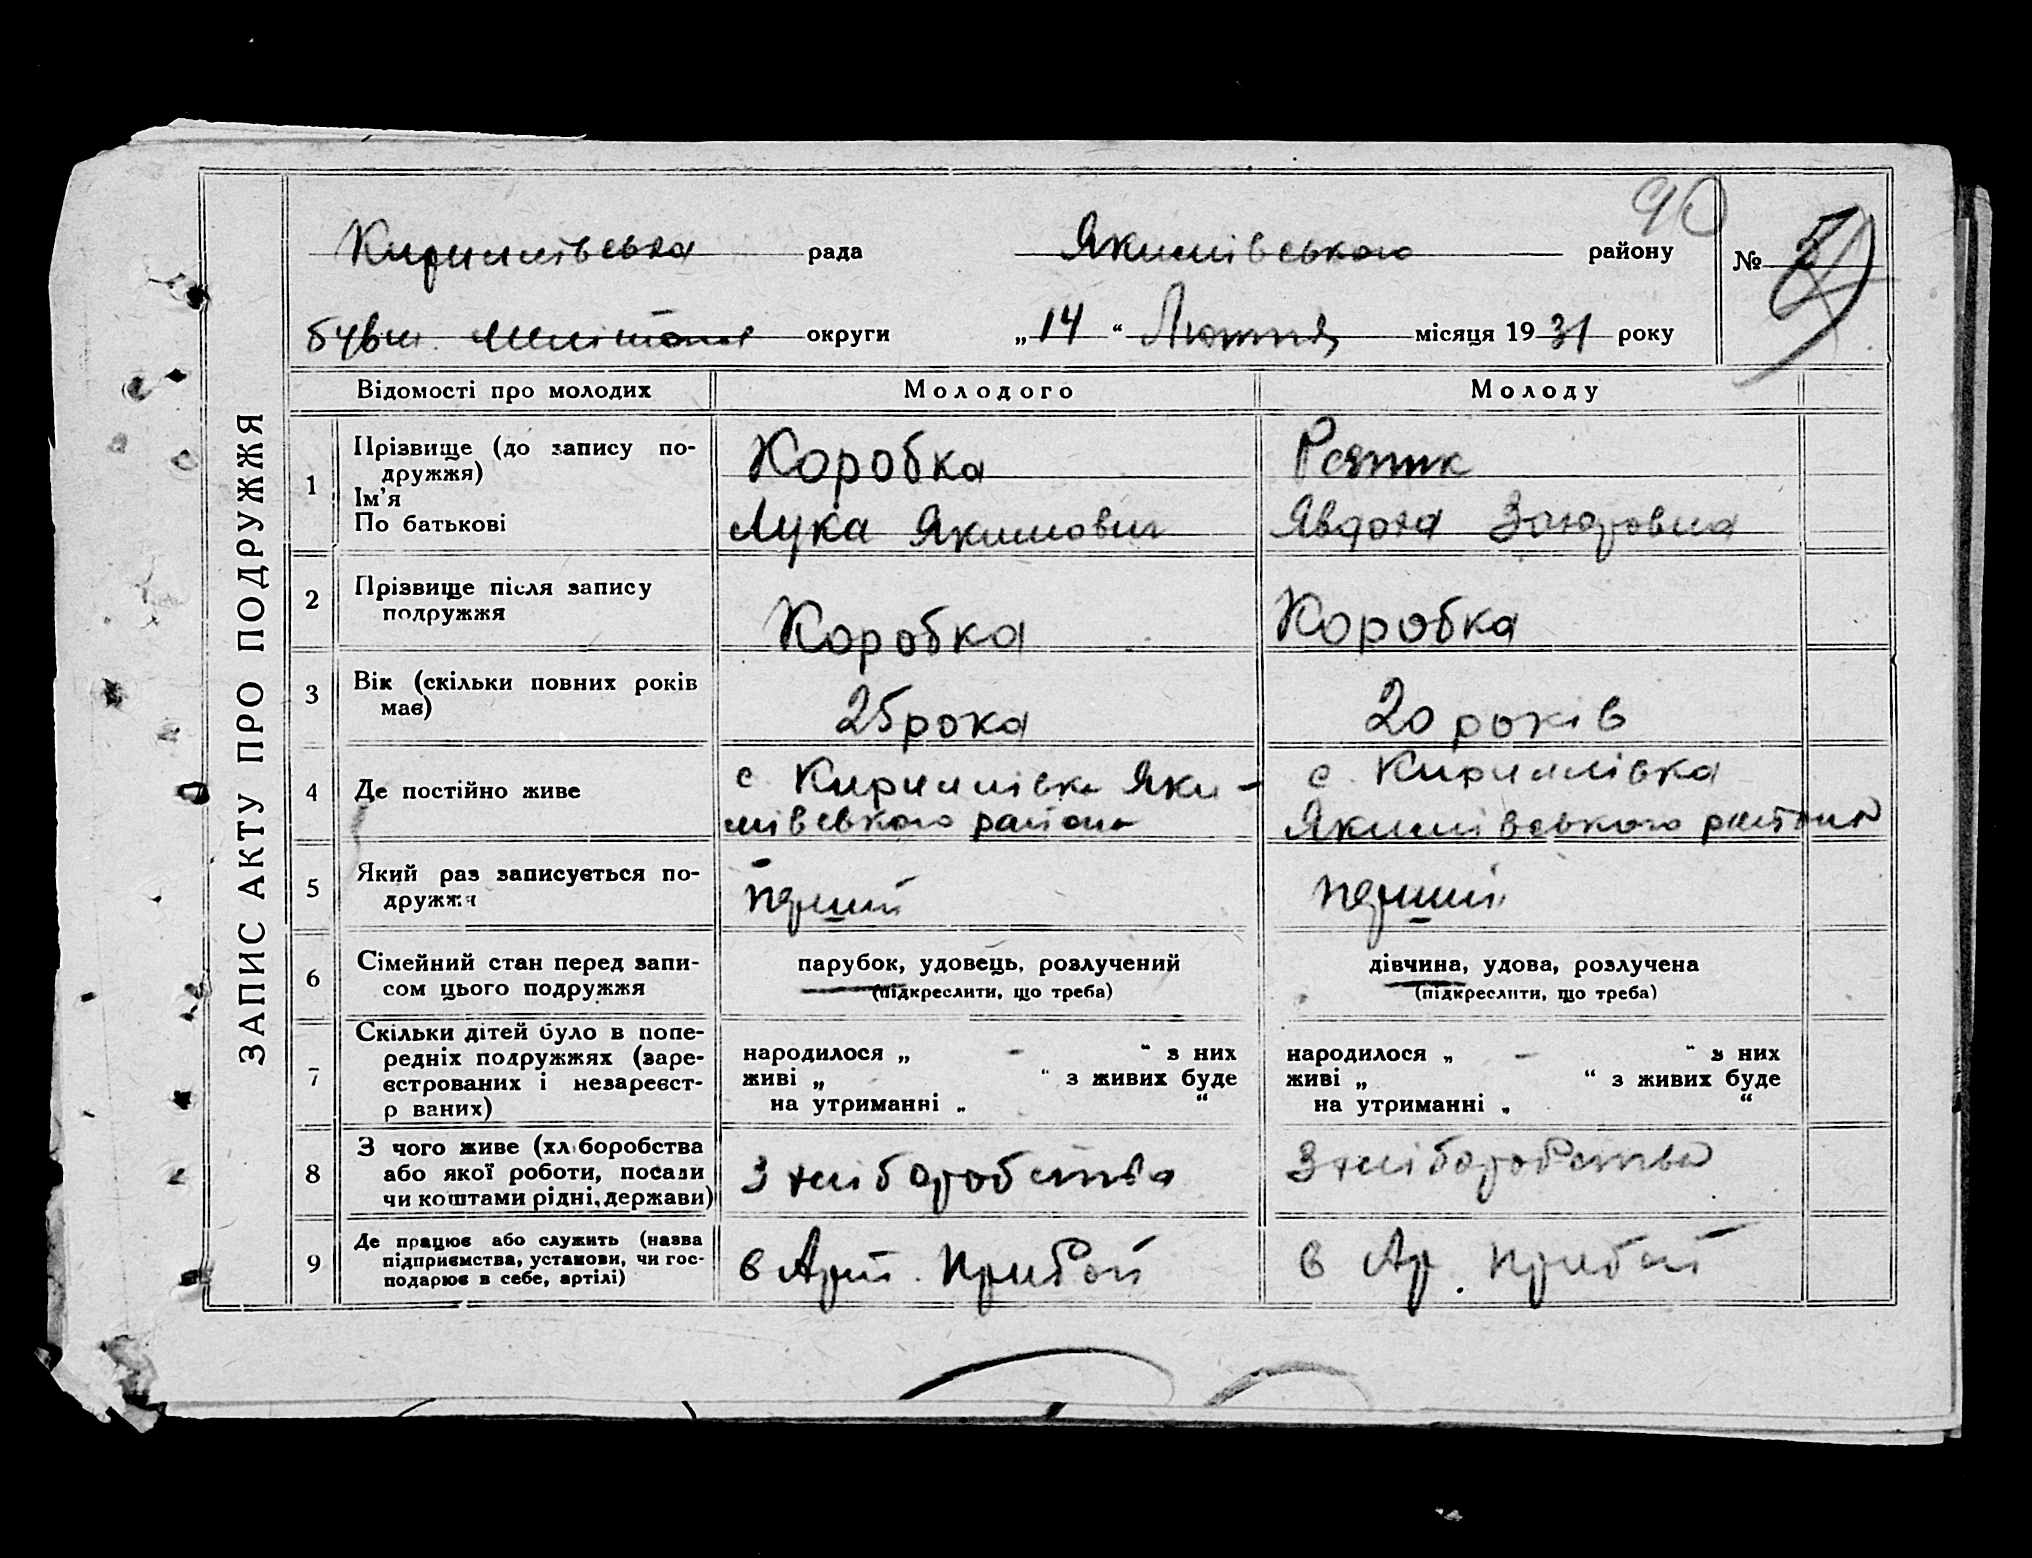 90
Кирилівська рада Якимівського району
№
бувш. Мелітопол округи „ 14 “ Лютня місяця 19 31 року
ЗАПИС АКТУ ПРО ПОДРУЖЖЯ
Відомості про молодих Молодого Молоду
1 Прізвище (до запису подружжя) Коробка Репик
Ім'я
По батькові Лука Якимович Явдоха
2 Прізвище після запису
подружжя Коробка Коробка
3 Вік (скільки повних років
має) 25 рока 20 років
4 Де постійно живе с. Кирилівка Яки- с. Кирилівка
мівського района Якимівського района
5 Який раз записується по-
дружжя перший перший
6 Сімейний стан перед запи- парубок, удовець, розлучений дівчина, удова, розлучена
сом цього подружжя (підкреслити, що треба) (підкреслити, що треба)
7 Скільки дітей було в попе-
редніх подружжях (заре- народилося „ - “ з них народилося „ - “ з них
єстрованих і незареєст- живі „ “ з живих буде живі „ “ з живих буде
р ваних) на утриманні „ “ на утриманні „ “
8 З чого живе (хліборобства
або якої роботи, посади З хліборобства З хліборобства
чи коштами рідні, держави)
9 Де працює або служить (назва
підприємства, установи, чи гос- в Арт. Прибой в Ар. Прибой
подарює в себе, артілі)